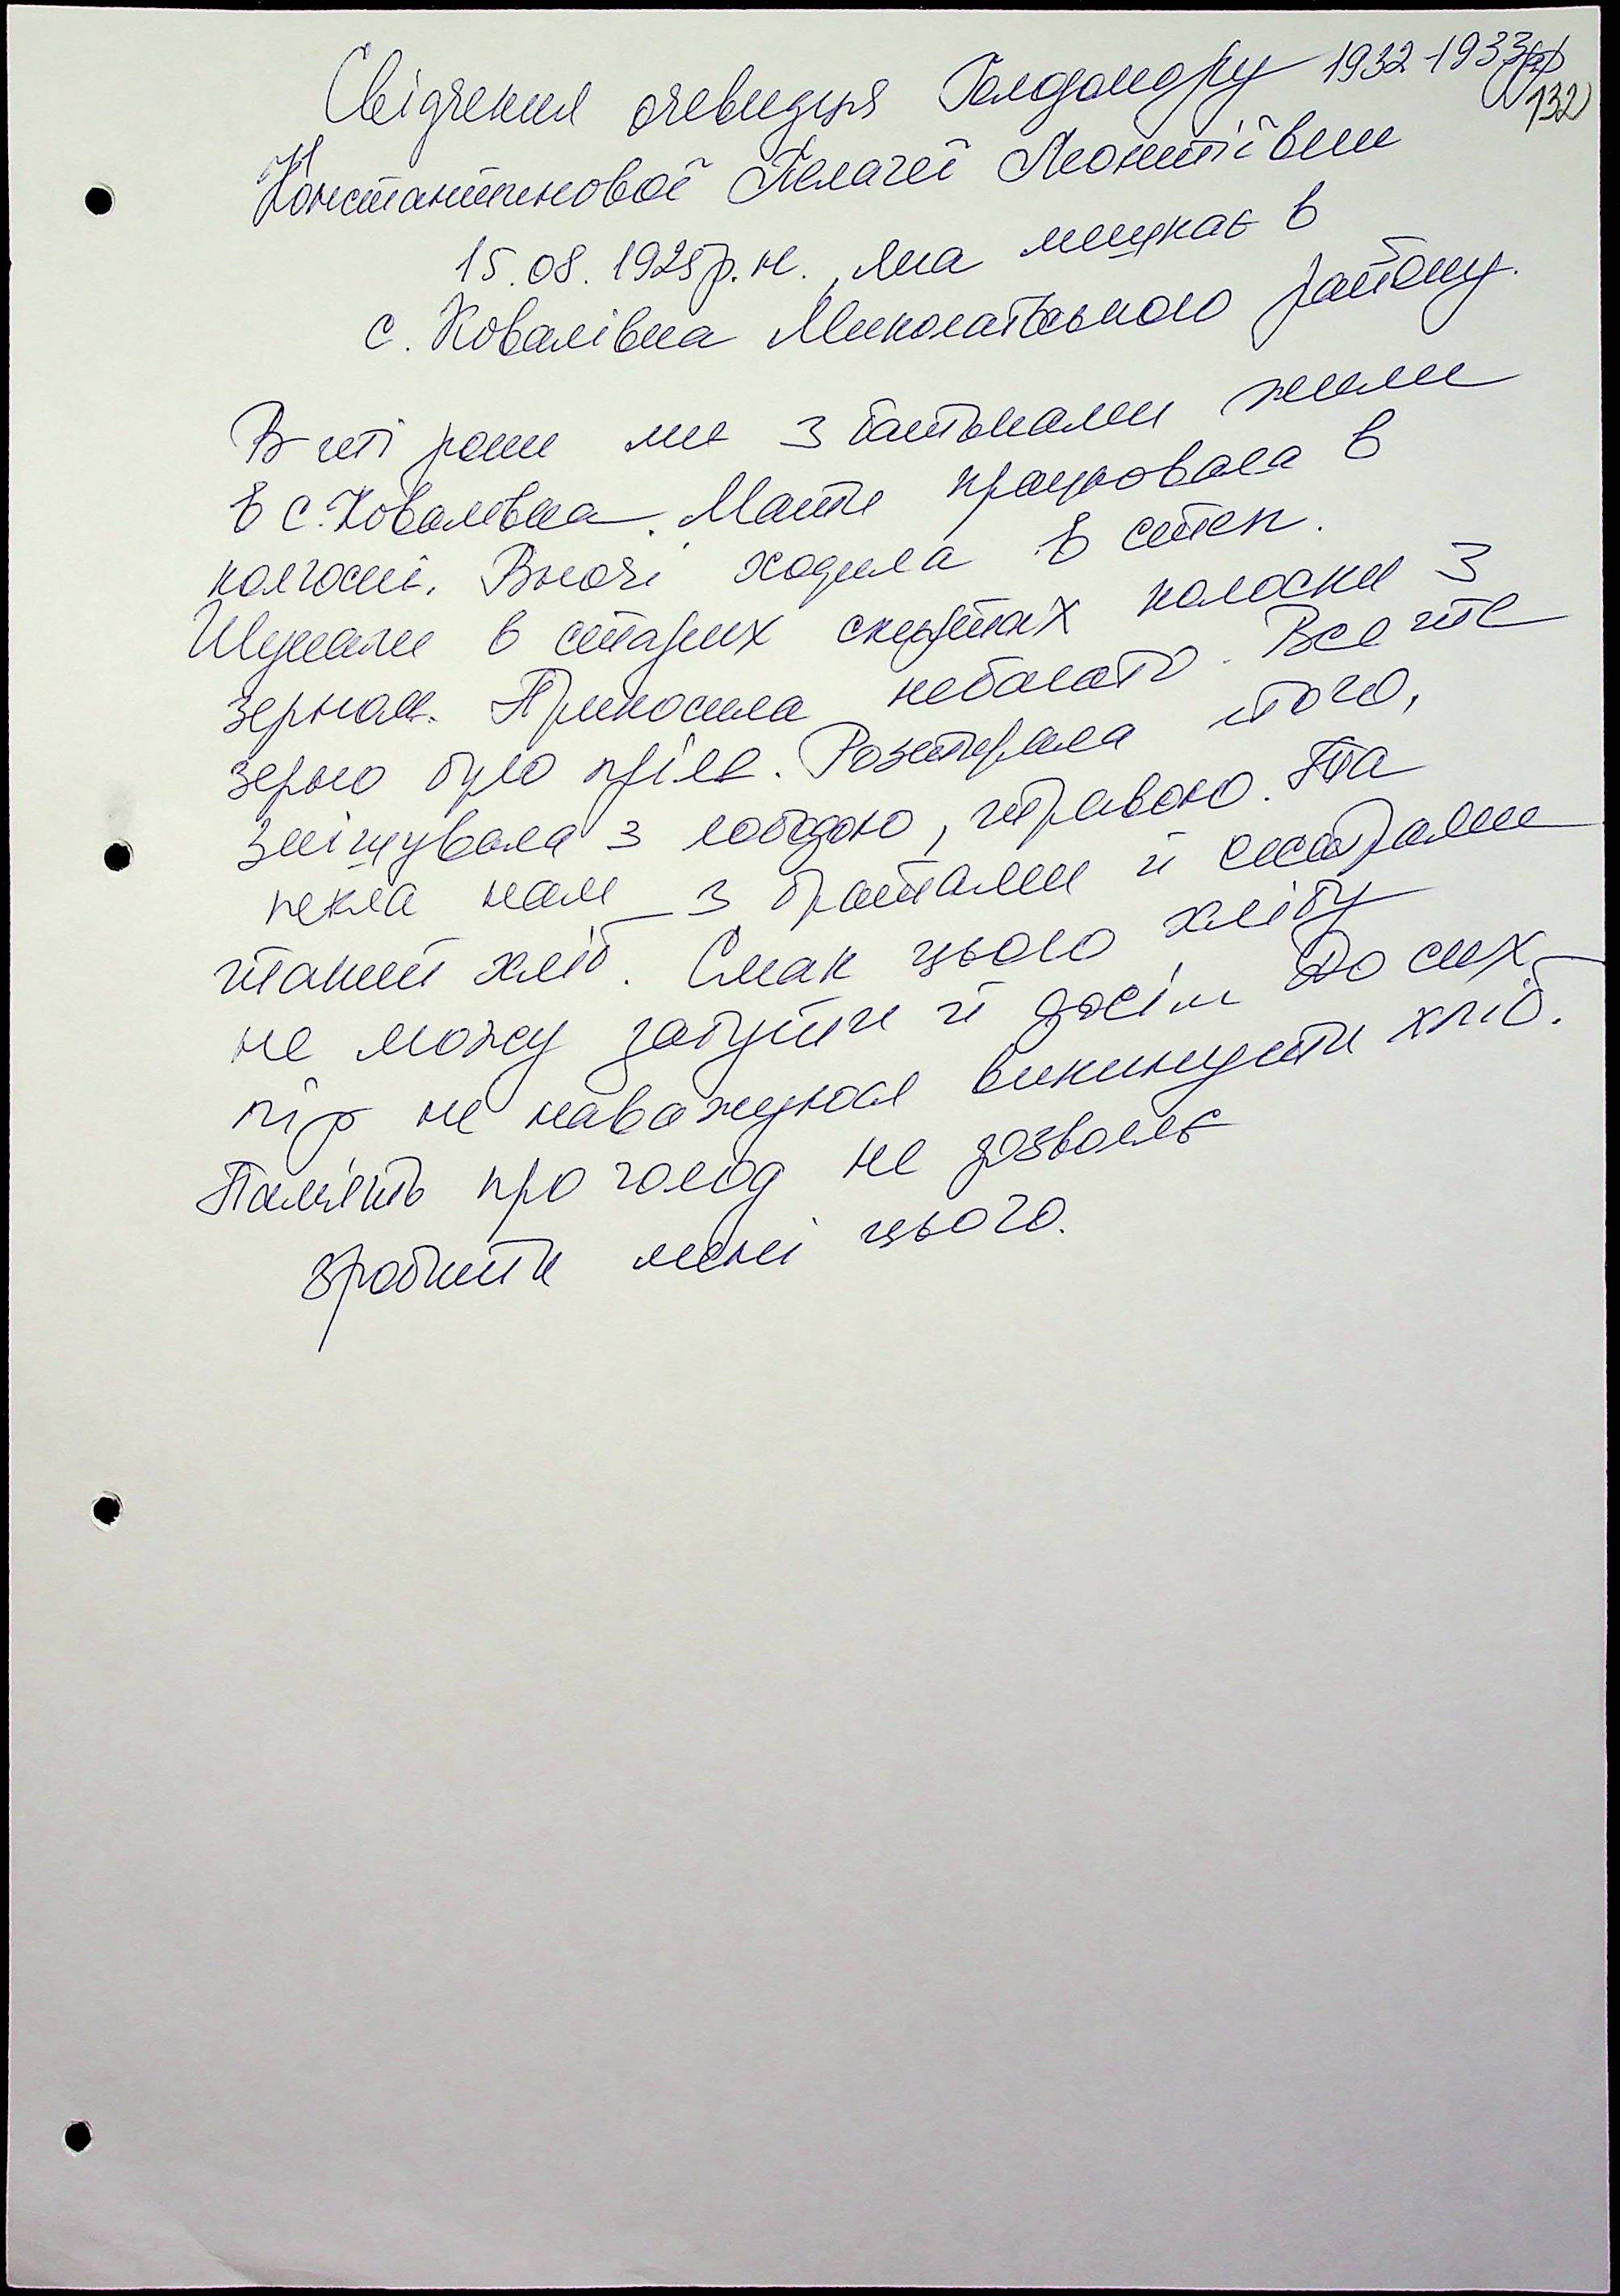 Свідчення очевидця Голодомору 1932-1933рр
132
Константинової Пелагеї Леонтіївни
15.08.1925р.н., яка мешкає в
с. Ковалівка Миколаївського району.
В ті роки ми з батьками жили
в с. Ковалівка. Мати працювала в
колгоспі. Вночі ходила в степ.
Шукали в старих скиртах колоски з
зерном. Приносила небагато. Все те
зерно було пріле. Розтирала його,
змішувала з лободою, травою. Та
пекла нам з братами й сестрами
такий хліб. Смак цього хлібу
не можу забути й досі. До сих
пір не наважуюся викинути хліб.
Пам'ять про голод не дозволяє
зробити мені цього.